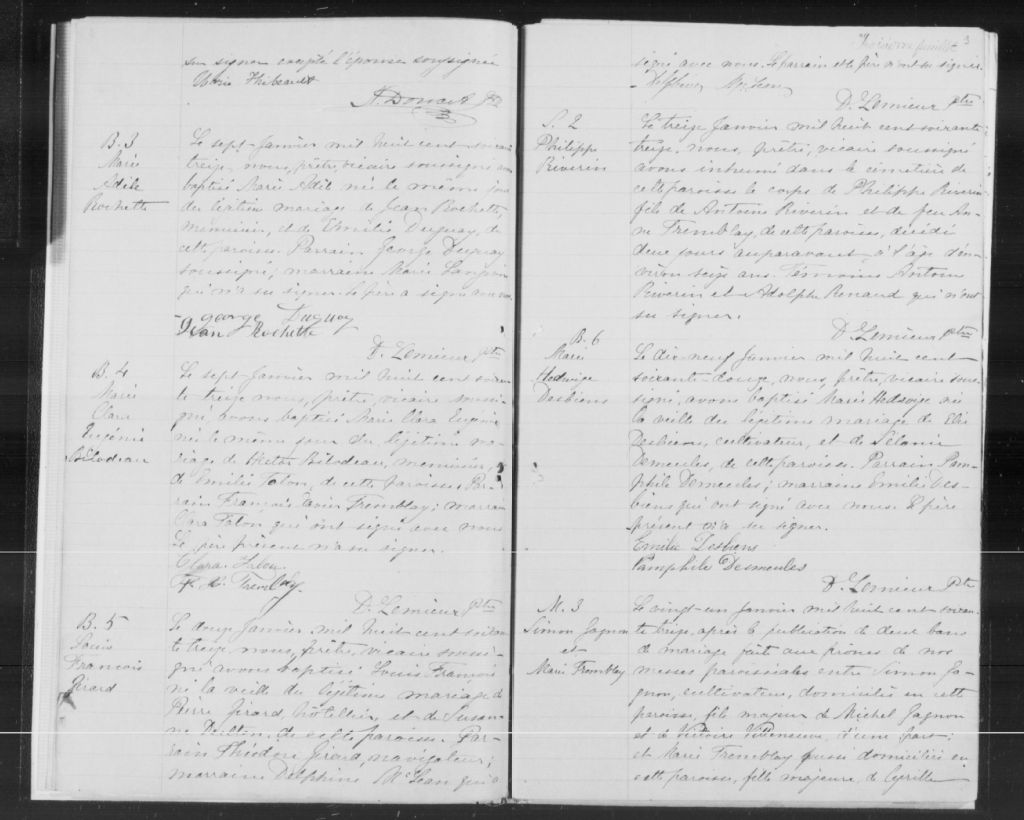 su signer excepté l'épouse soussignée
Marie Thibeault
Ptre
B. 3
Marie
Adèle
Rochette
Le sept Janvier mil huit cent soixante
treize, nous, prêtre, vicaire soussigné avons
baptisé Marie Adèle née le même jour
du légitime mariage de Jean Rochette,
menuisier, et de Emilie Duguay, de
cette paroisse. Parrain George Duguay
soussigné; marraine Marie
qui n'a su signer. le père a signé avec nous
George Duguay
Jean Rochette
D. Lemieux Ptre
B. 4
Marie
Clara
Eugénie
Bilodeau
Le sept Janvier mil huit cent soixan-
te treize nous, prêtre, vicaire soussi-
gné, avons baptisé Marie Clara Eugénie
née le même jour du légitime ma-
riage de Hector Bilodeau, menuisier, et
de Emilie Talon, de cette paroisse. Par-
rain François Xavier Tremblay; marraine
Clara Talon qui ont signé avec nous
Le père présent n'a su signer.
Clara Talon
F. X. Tremblay
D. Lemieux Ptre
B. 5
Louis
François
Girard
Le douze Janvier, mil huit cent soixan-
te treize nous, prêtre, vicaire soussi-
gné avons baptisé Louis François
né la veille du légitime mariage de
Pierre Girard, hôtelier, et de Susan-
ne, de cette paroisse. Par-
rain Théodore Girard, navigateur;
marraine Delphine McLean qui a
Troisième feuillet 3
signé avec nous. Le parrain et le père n'ont su signer.
Delphine McLean
D. Lemieux Ptre
S. 2
Philippe
Riverin
Le treize Janvier mil huit cent soixante
treize, nous, prêtre, vicaire soussigné
avons inhumé dans le cimetière de
cette paroisse le corps de Philippe Riverin
fils de Antoine Riverin et de feu An-
ne Tremblay, de cette paroisse, décédé
deux jours auparavant à l'âge d'en-
viron seize ans. Témoins Antoine
Riverin et Adolphe Renaud qui n'ont
su signer.
D. Lemieux Ptre
B. 6
Marie
Hedwige
Desbiens
Le dix-neuf Janvier mil huit cent
soixante-douze, nous, prêtre, vicaire sous-
signé, avons baptisé Marie Hedwige née
la veille du légitime mariage de Elie
Desbiens, cultivateur, et de Mélanie
Demeules, de cette paroisse. Parrain Pam-
phile Demeules; marraine Emilie Des-
biens qui ont signé avec nous. Le père
présent n'a su signer.
Emilie Desbiens
Pamphile Desmeules
D. Lemieux Ptre
M. 3
Simon Gagnon
et
Marie Tremblay
Le vingt-un Janvier mil huit cent soixan-
te treize, après la publication de deux bans
de mariage fait aux prônes de nos
messes paroissiales entre Simon Ga-
gnon, cultivateur, domicilié en cette
paroisse, fils majeur de Michel Gagnon
et de Victoire Villeneuve, d'une part;
et Marie Tremblay aussi domiciliée en
cette paroisse, fille majeure, de Cyrille